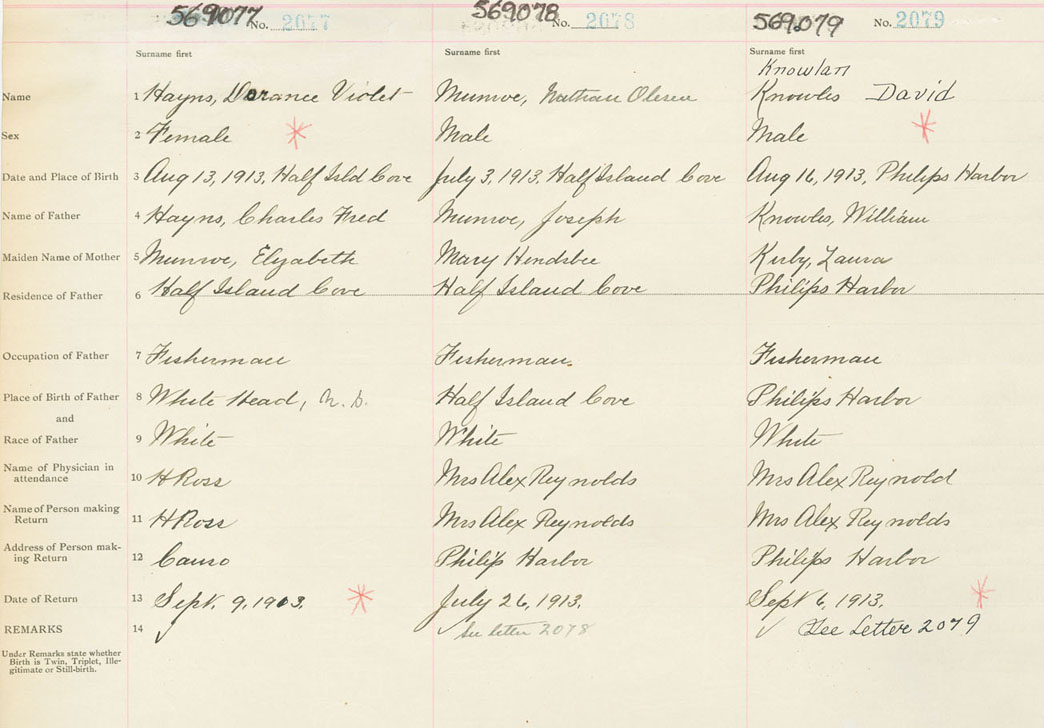 569077 No. 2077 569078 No. 2078 569079 No. 2079
Surname first Surname first Surname first
Knowlan
Name 1 Hayns, Dorance Violet Munroe, Nathan Olesen Knowles David
Sex 2 Female Male Male
Date and Place of Birth 3 Aug 13, 1913, Half Isld Cove July 3, 1913. Half Island Cove Aug 16, 1913, Philips Harbor
Name of Father 4 Hayns, Charles Fred Munroe, Joseph Knowles, William
Maiden Name of Mother 5 Munroe, Elyzabeth Mary Hendsbee Kirby, Laura
Residence of Father 6 Half Island Cove Half Island Cove Philips Harbor
Occupation of Father 7 Fisherman Fisherman. Fisherman
Place of Birth of Father 8 White Head, Half Island Cove Philips Harbor
and
Race of Father 9 White White White
Name of Physician in
attendance 10 H Ross Mrs Alex Reynolds Mrs Alex Reynold
Name of Person making
Return 11 H Ross Mrs Alex Reynolds Mrs Alex Reynolds
Address of Person mak-
ing Return 12 Canso Philip Harbor Philips Harbor
Date of Return 13 Sept. 9, 1913. July 26, 1913. Sept 6, 1913.
REMARKS 14 See letter 2078 See Letter 2079
Under Remarks state whether
Birth is Twin, Triplet, Ille-
gitimate or Still-birth.